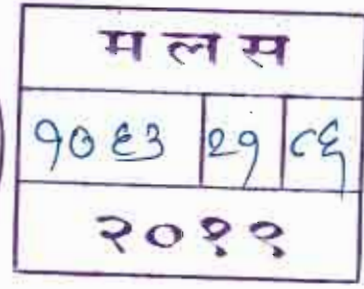 म ल स
१०९३ २१ ८६
२०१९